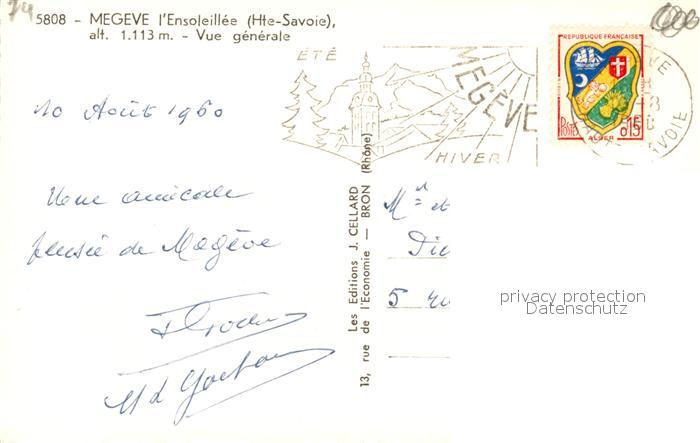 74
5808 - MEGEVE l'Ensoleillée (Hte-Savoie),
alt. 1.113 m. - Vue générale
ÉTÉ
MEGÈVE
HIVER
REPUBLIQUE FRANÇAISE
POSTES
0,15
ALGER
SAVOIE
10 Août 1960
Une amicale
pensée de Megève
Les Editions J. CELLARD
13, rue de l'Economie — BRON (Rhône)
M
5
privacy protection
Datenschutz